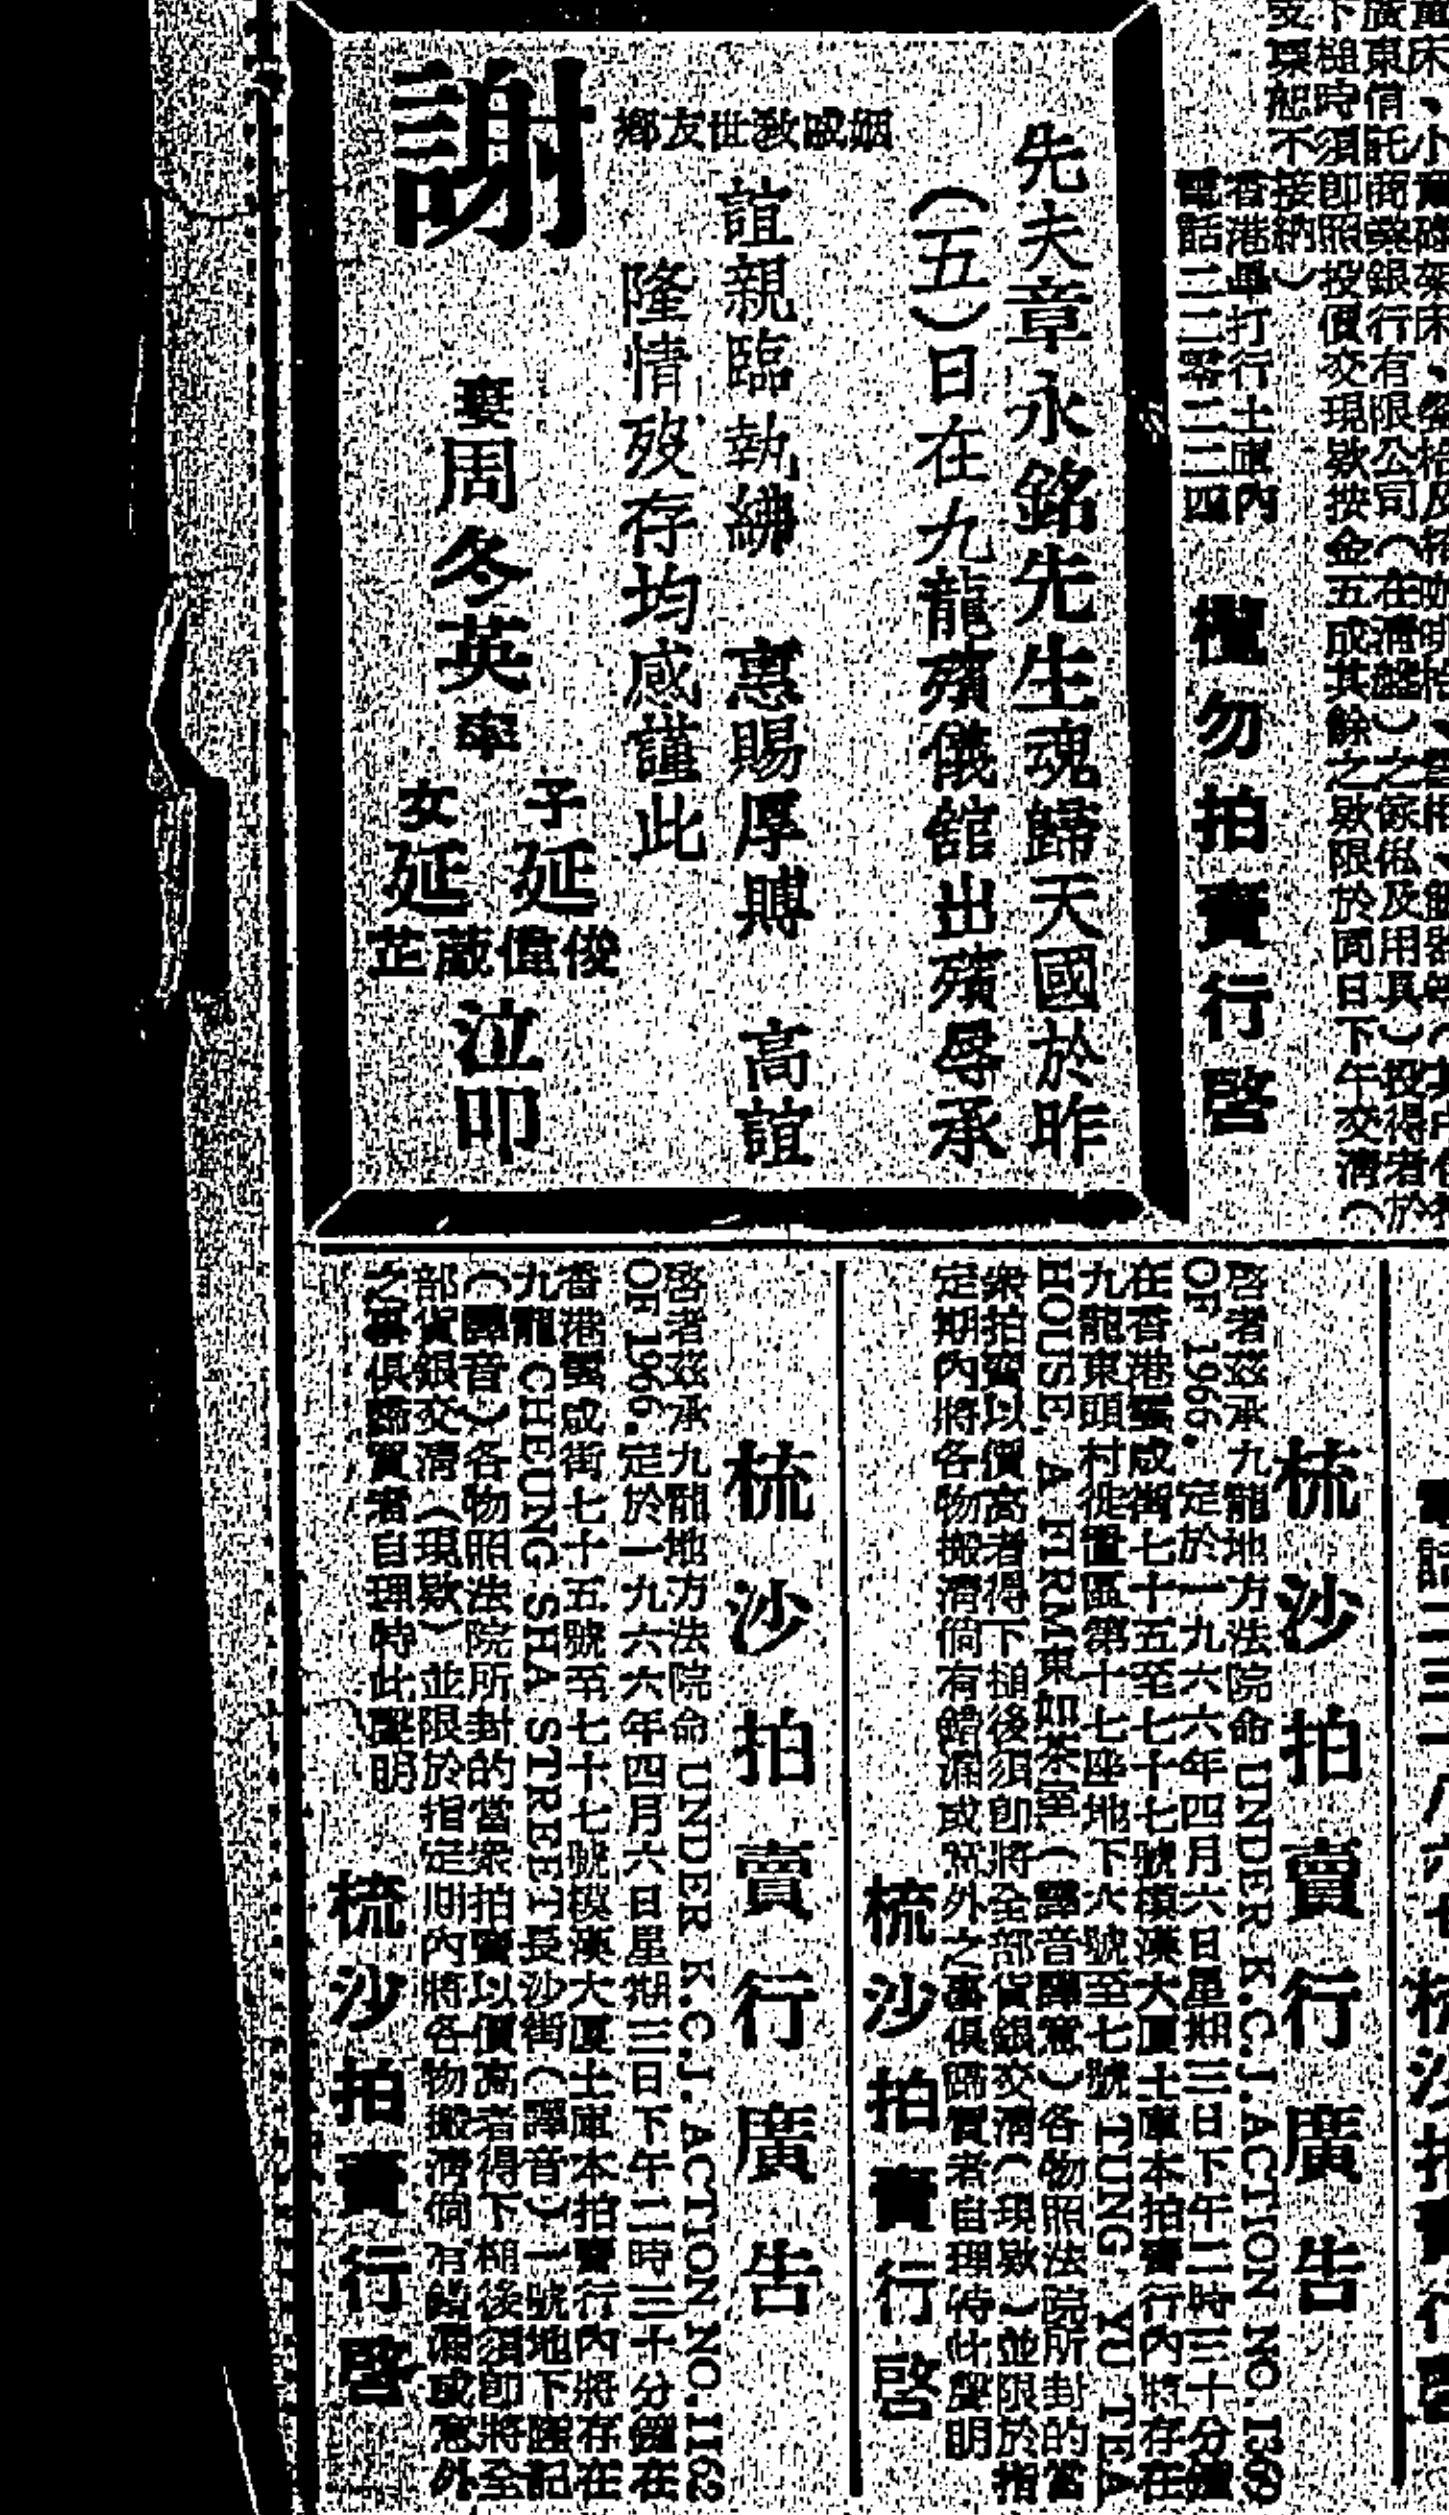 先夫章永銘先生魂歸天國於昨
（五）日在九龍殯儀舘出殯辱承
姻戚教世友鄉
誼親臨執紼　惠賜厚賻　高誼
隆情歿存均感謹此
謝
妻周冬英率
子延俊偉
女延葳芷
泣叩
下槌時須即照投價交現欵按金五成其餘之欵限於同日下午交清（
支票恕不接納）
香港畢打行土庫內
欖勿拍賣行啓
梳沙拍賣行廣告
啓者茲承九龍地方法院命 UNDER K.C.J. ACTION NO. 1369
OF 1966. 定於一九六六年四月六日星期三日下午二時三十分鐘
在香港威街七十五至七十七號模漢大厦土庫本拍賣行內將存在
九龍東頭村徙置區第十七座地下六號至七號 TUNG YU TEA
HOUSE, A FIRM 東如茶室（譯音譯意）各物照法院所封的當
衆拍賣以價高者得下槌後須即將全部貨銀交清（現欵）並限於指
定期內將各物搬清倘有錯漏或意外之事俱歸買者自理特此聲明
梳沙拍賣行啓
梳沙拍賣行廣告
啓者茲承九龍地方法院命 UNDER K.C.J. ACTION NO. 1162
OF 1966. 定於一九六六年四月六日星期三日下午二時三十分鐘在
香港威街七十五號至七十七號模漢大厦土庫本拍賣行內將存在
九龍 CHEUNG SHA STREET 長沙街（譯音）一號地下匯記
（譯音）各物照法院所封的當衆拍賣以價高者得下槌後須即將全
部貨銀交清（現欵）並限於指定期內將各物搬清倘有錯漏或意外
之事俱歸買者自理特此聲明
梳沙拍賣行啓